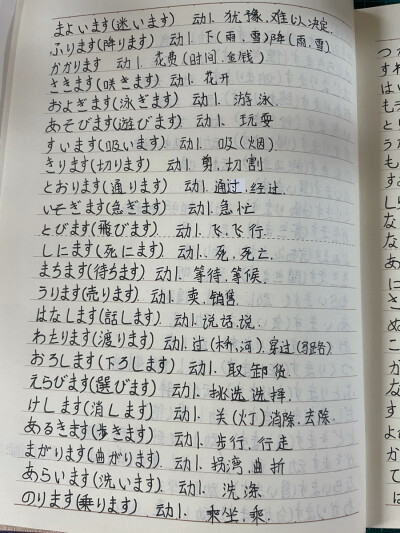 まよいます(迷います) 动1. 犹豫,难以决定.
ふります(降ります) 动1. 下(雨,雪)降(雨,雪)
かかります 动1. 花费(时间,金钱)
さきます(咲きます) 动1. 花开
およぎます(泳ぎます) 动1. 游泳
あそびます(遊びます) 动1. 玩耍
すいます(吸います) 动1. 吸(烟).
きります(切ります) 动1 剪,切割
とおります(通ります) 动1.通过,经过.
いそぎます(急ぎます) 动1.急忙
とびます(飛びます) 动1. 飞,飞行.
しにます(死にます) 动1. 死,死亡.
まちます(待ちます) 动1. 等待,等候.
うります(売ります) 动1. 卖,销售
はなします(話します) 动1.说话,说.
わたります(渡ります) 动1.过(桥,河),穿过(马路)
おろします(下ろします) 动1. 取,卸货
えらびます(選びます) 动1.挑选,选择.
けします(消します) 动1. 关(灯)消除,去除.
あるきます(歩きます) 动1. 步行,行走
まがります(曲がります) 动1.拐弯,曲折
あらいます(洗います) 动1. 洗涤
のります(乗ります) 动1. 乘坐,乘.